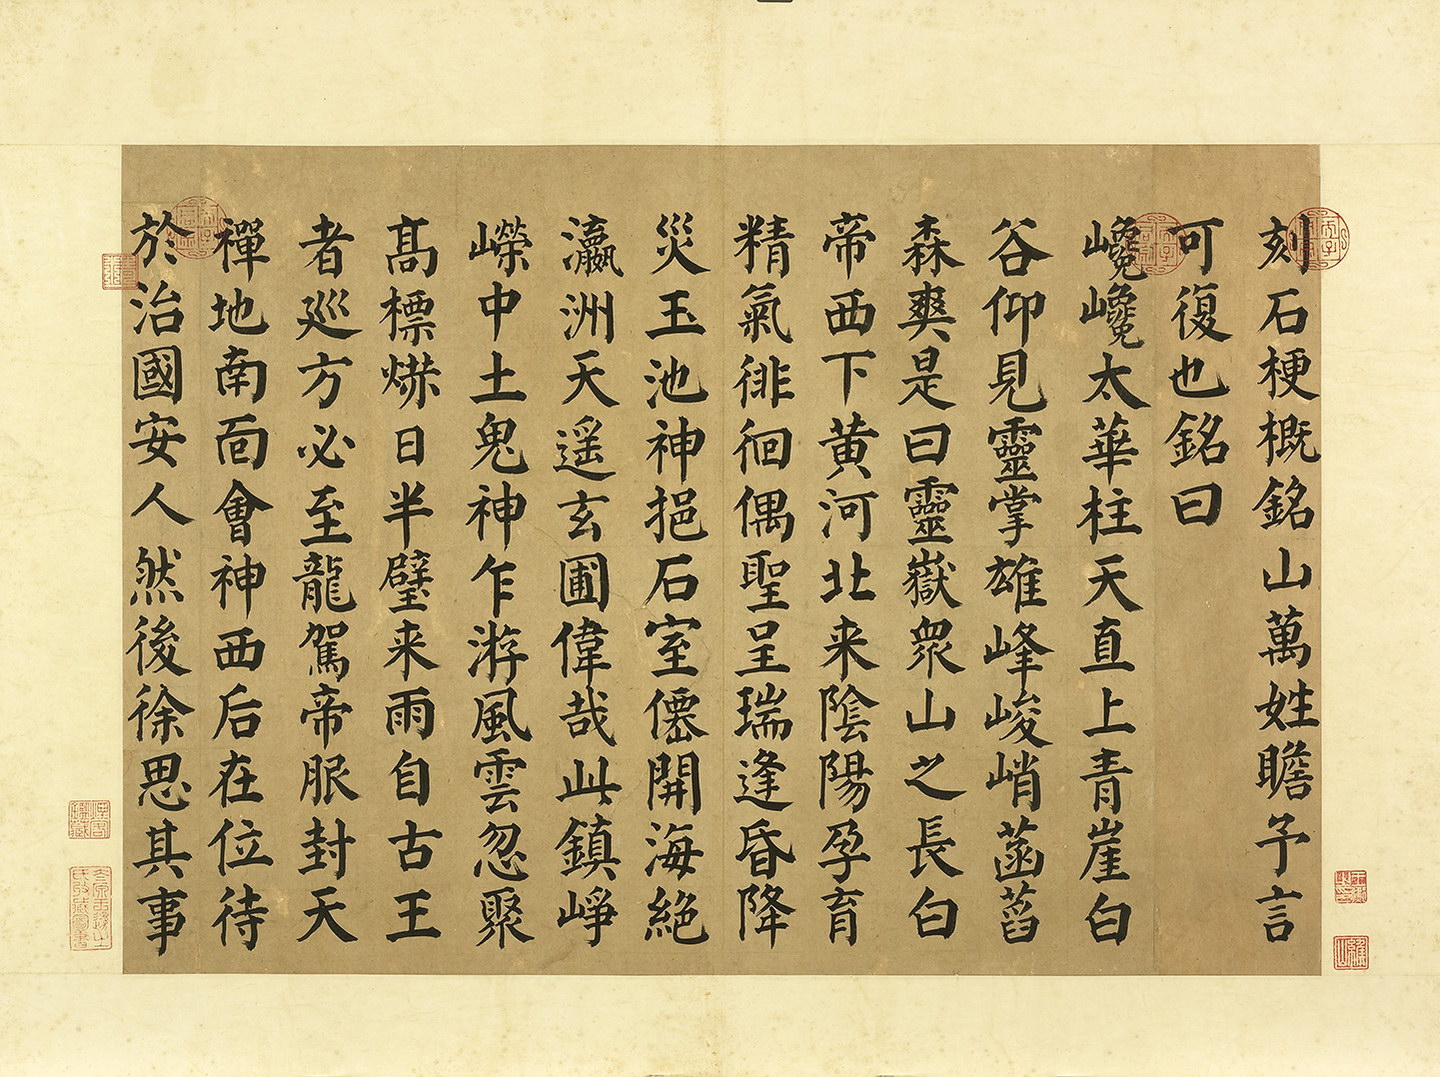 刻石梗概銘山萬姓瞻予言
可復也銘曰
巉巉太華柱天直上青崖白
谷仰見靈掌雄峰峻峭菡萏
森爽是曰靈嶽眾山之長白
帝西下黄河北来陰陽孕育
精氣徘徊偶聖呈瑞逢昏降
災玉池神挹石室僊開海絶
瀛洲天遥玄圃偉哉此鎮崢
嶸中土鬼神乍游風雲忽聚
髙標爀日半壁来雨自古王
者巡方必至龍駕帝服封天
禪地南面會神西后在位待
於治國安人然後徐思其事